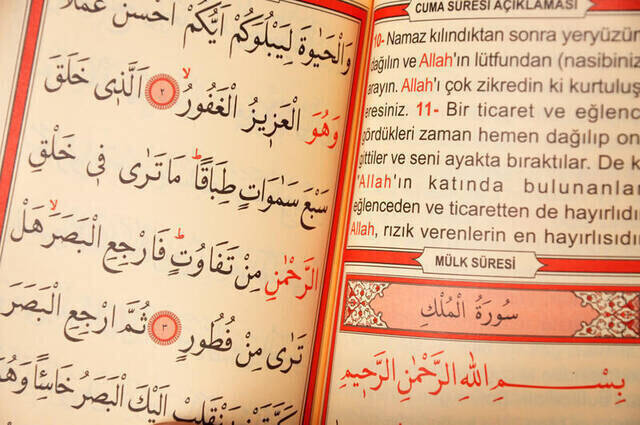 CUMA SÛRESİ AÇIKLAMASI
10- Namaz kılındıktan sonra yeryüzün
dağılın ve Allah'ın lütfundan (nasibiniz
arayın. Allah'ı çok zikredin ki kurtuluş
eresiniz. 11- Bir ticaret ve eğlenc
gördükleri zaman hemen dağılıp on
gittiler ve seni ayakta bıraktılar. De k
"Allah'ın katında bulunanla
eğlenceden ve ticaretten de hayırlıdı
Allah, rızık verenlerin en hayırlısıdı
MÜLK SÛRESİ
سُورَةُ الْمُلْكِ
بِسْمِ اللهِ الرَّحْمٰنِ الرَّحٖيمِ
وَالْحَيٰوةَ لِيَبْلُوَكُمْ اَيُّكُمْ اَحْسَنُ عَمَلًا
وَهُوَ الْعَزٖيزُ الْغَفُورُۙ ٢ اَلَّذٖى خَلَقَ
سَبْعَ سَمٰوَاتٍ طِبَاقًاۜ مَا تَرٰى فٖى خَلْقِ
الرَّحْمٰنِ مِنْ تَفَاوُتٍۜ فَارْجِعِ الْبَصَرَۙ هَلْ
تَرٰى مِنْ فُطُورٍ ٣ ثُمَّ ارْجِعِ الْبَصَرَ
كَرَّتَيْنِ يَنْقَلِبْ اِلَيْكَ الْبَصَرُ خَاسِئًا وَهُوَ